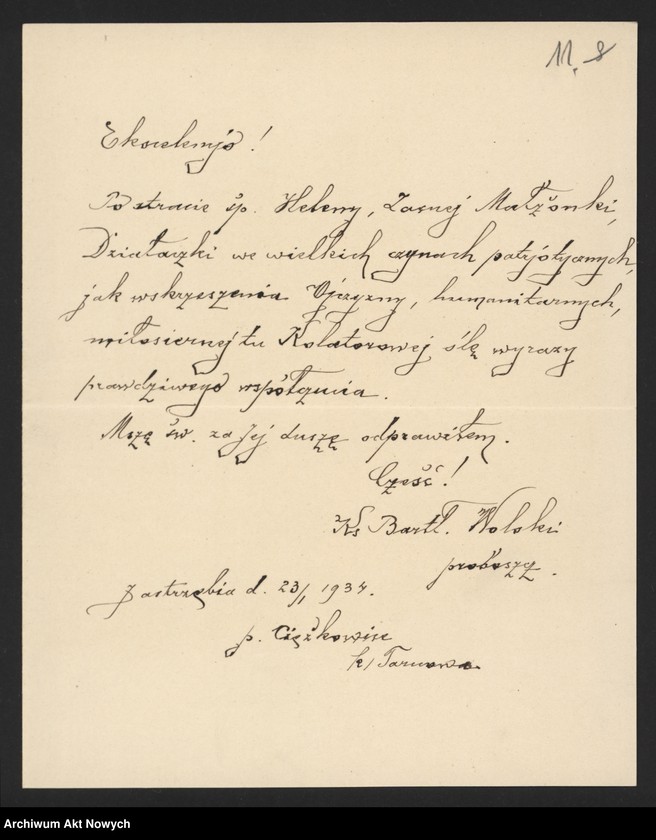 11, 8
Ekscelencjo!
Po stracie śp. Heleny, Zacnej Małżonki,
Działaczki we wielkich czynach patrjotycznych,
jak wskrzeszenia Ojczyzny, humanitarnych,
miłosiernej tu Kolatorowej ślę wyrazy
prawdziwego współczucia.
Mszę św. za Jej duszę odprawiłem.
Cześć!
Ks Bartł. Wolski
proboszcz.
Jastrzębia d. 23/1 1934.
p. Ciężkowice
k/ Tarnowa
Archiwum Akt Nowych